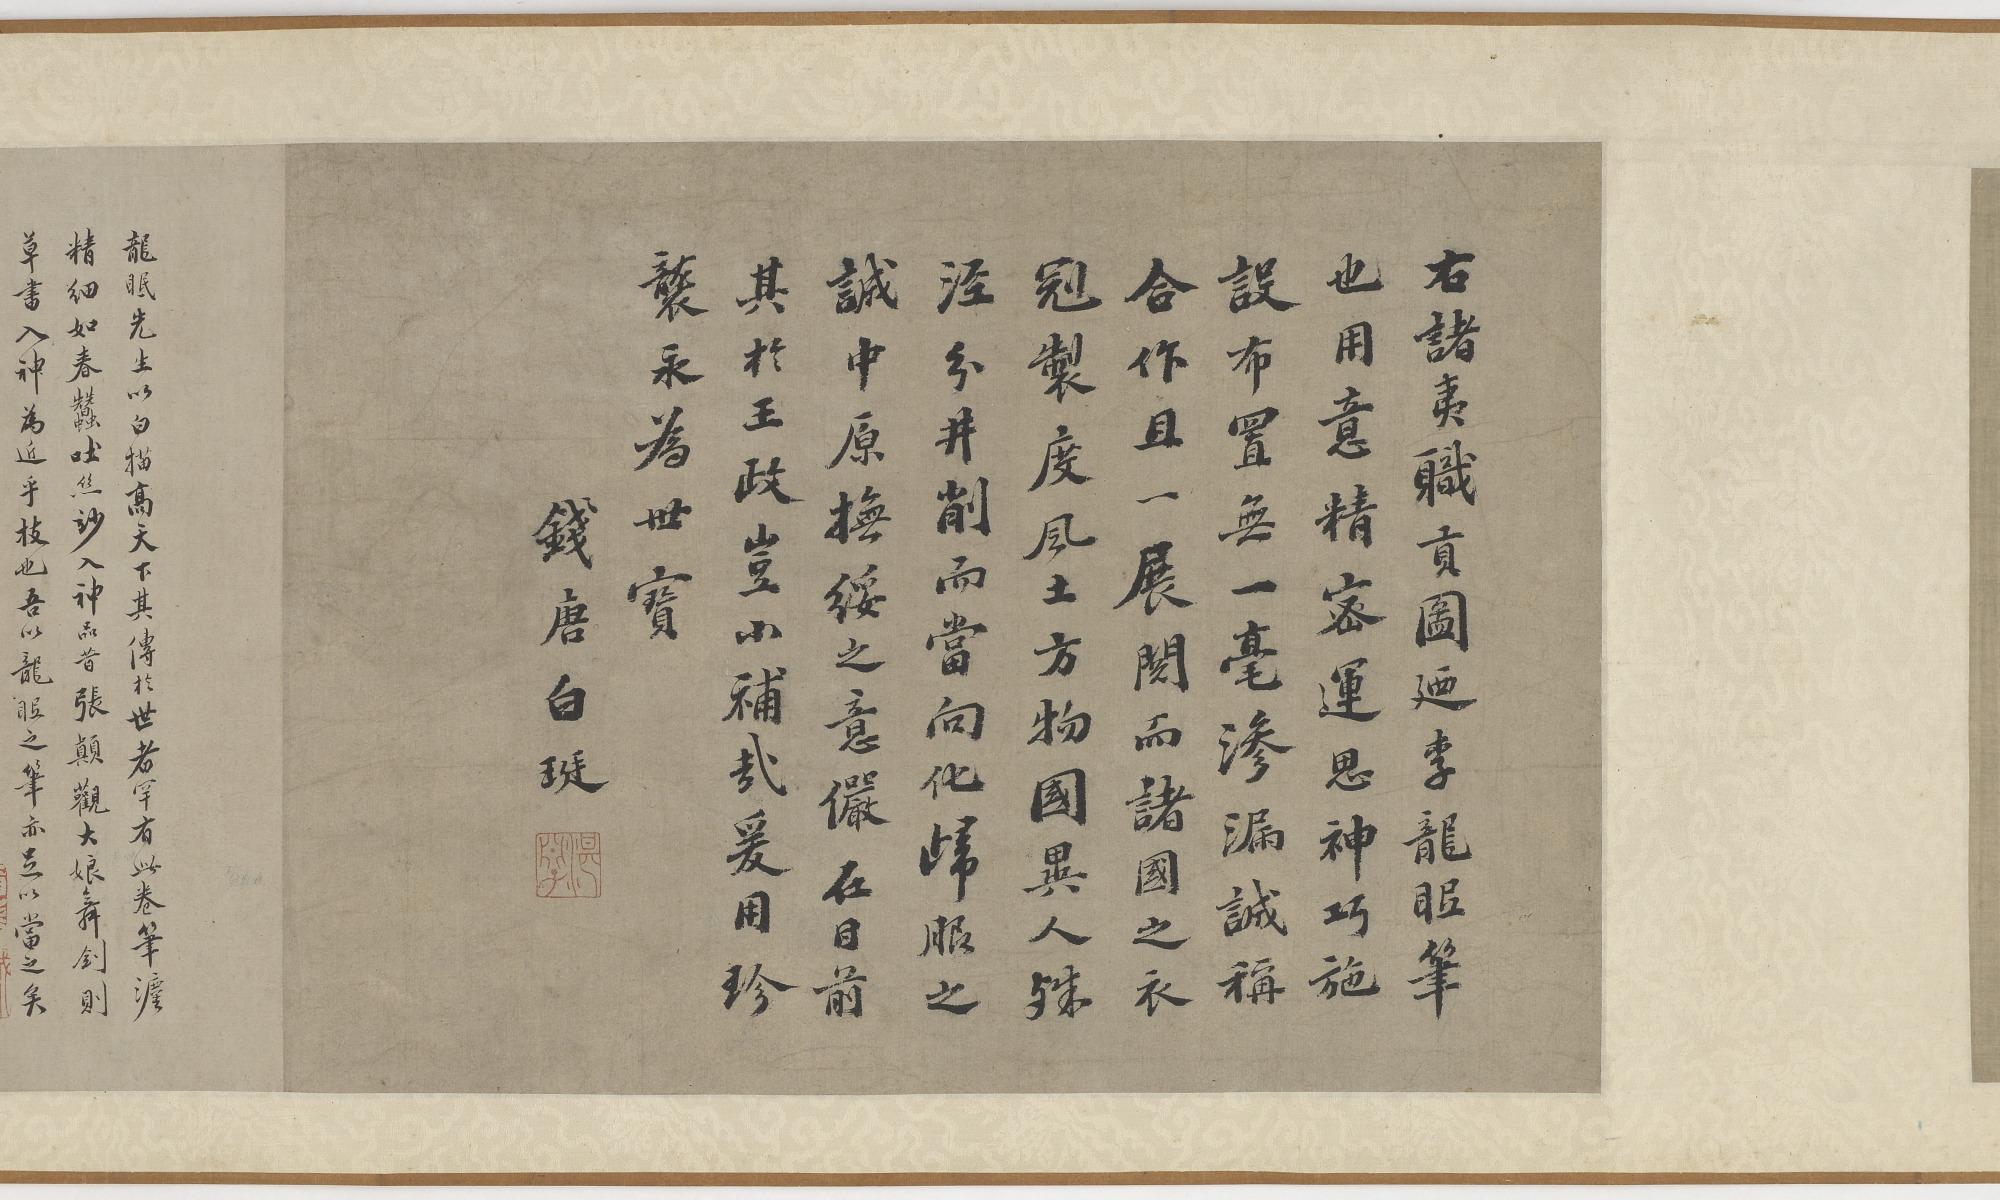 右諸夷職貢圖廼李龍眠筆
也用意精密運思神巧施
設布置無一毫滲漏誠稱
合作且一展閱而諸國之衣
冠製度風土方物國異人殊
涇分井削而當向化歸服之
誠中原撫綏之意儼在目前
其於王政豈小補哉爰用珍
襲永為世寶
錢唐白珽
龍眠先生以白描高天下其傳於世者罕有此卷筆
精細如春蠶吐絲妙入神品昔張顛觀大娘舞劍則
草書入神為近乎技也吾以龍眠之筆亦足以當之矣